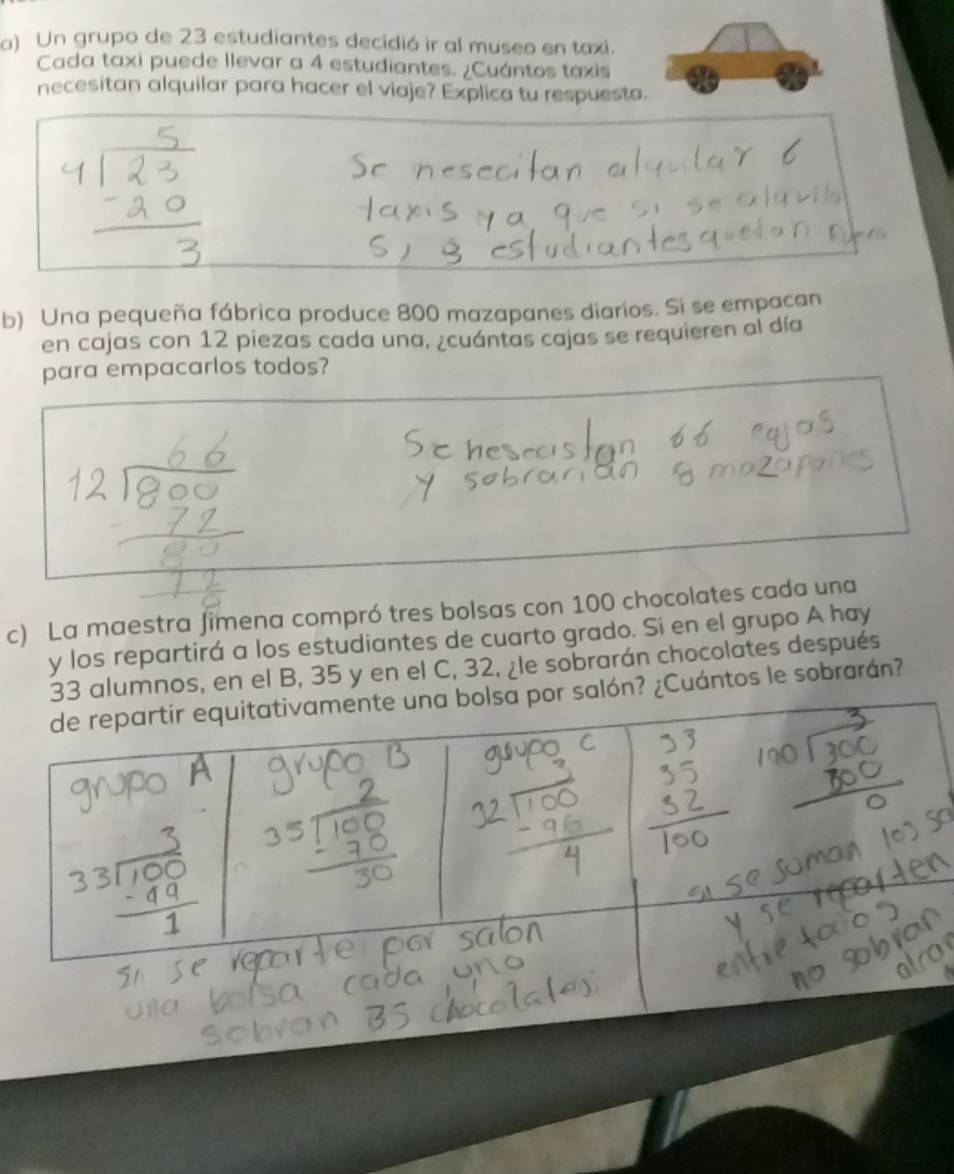 a) Un grupo de 23 estudiantes decidió ir al museo en taxi.
Cada taxi puede llevar a 4 estudiantes. ¿Cuántos taxis
necesitan alquilar para hacer el viaje? Explica tu respuesta.
5
4 23
-20
3
Se nesecitan alquilar 6
taxis ya que si se alquila
5, 3 estudiantes quedan
b) Una pequeña fábrica produce 800 mazapanes diarios. Si se empacan
en cajas con 12 piezas cada una, ¿cuántas cajas se requieren al día
para empacarlos todos?
66
12 800
-72
80
72
8
Se nesecistan 66 cajas
y sobrarian 8 mazapanes
c) La maestra Jimena compró tres bolsas con 100 chocolates cada una
y los repartirá a los estudiantes de cuarto grado. Si en el grupo A hay
33 alumnos, en el B, 35 y en el C, 32, ¿le sobrarán chocolates después
de repartir equitativamente una bolsa por salón? ¿Cuántos le sobrarán?
grupo A
3
33 100
-99
1
grupo B
2
35 100
-70
30
grupo C
3
32 100
-96
4
33
35
32
100
3
100 300
300
0
si se reparte por salon
una bolsa cada uno
sobran 35 chocolates
si se suman los
y se reparten
entre todos
no sobran